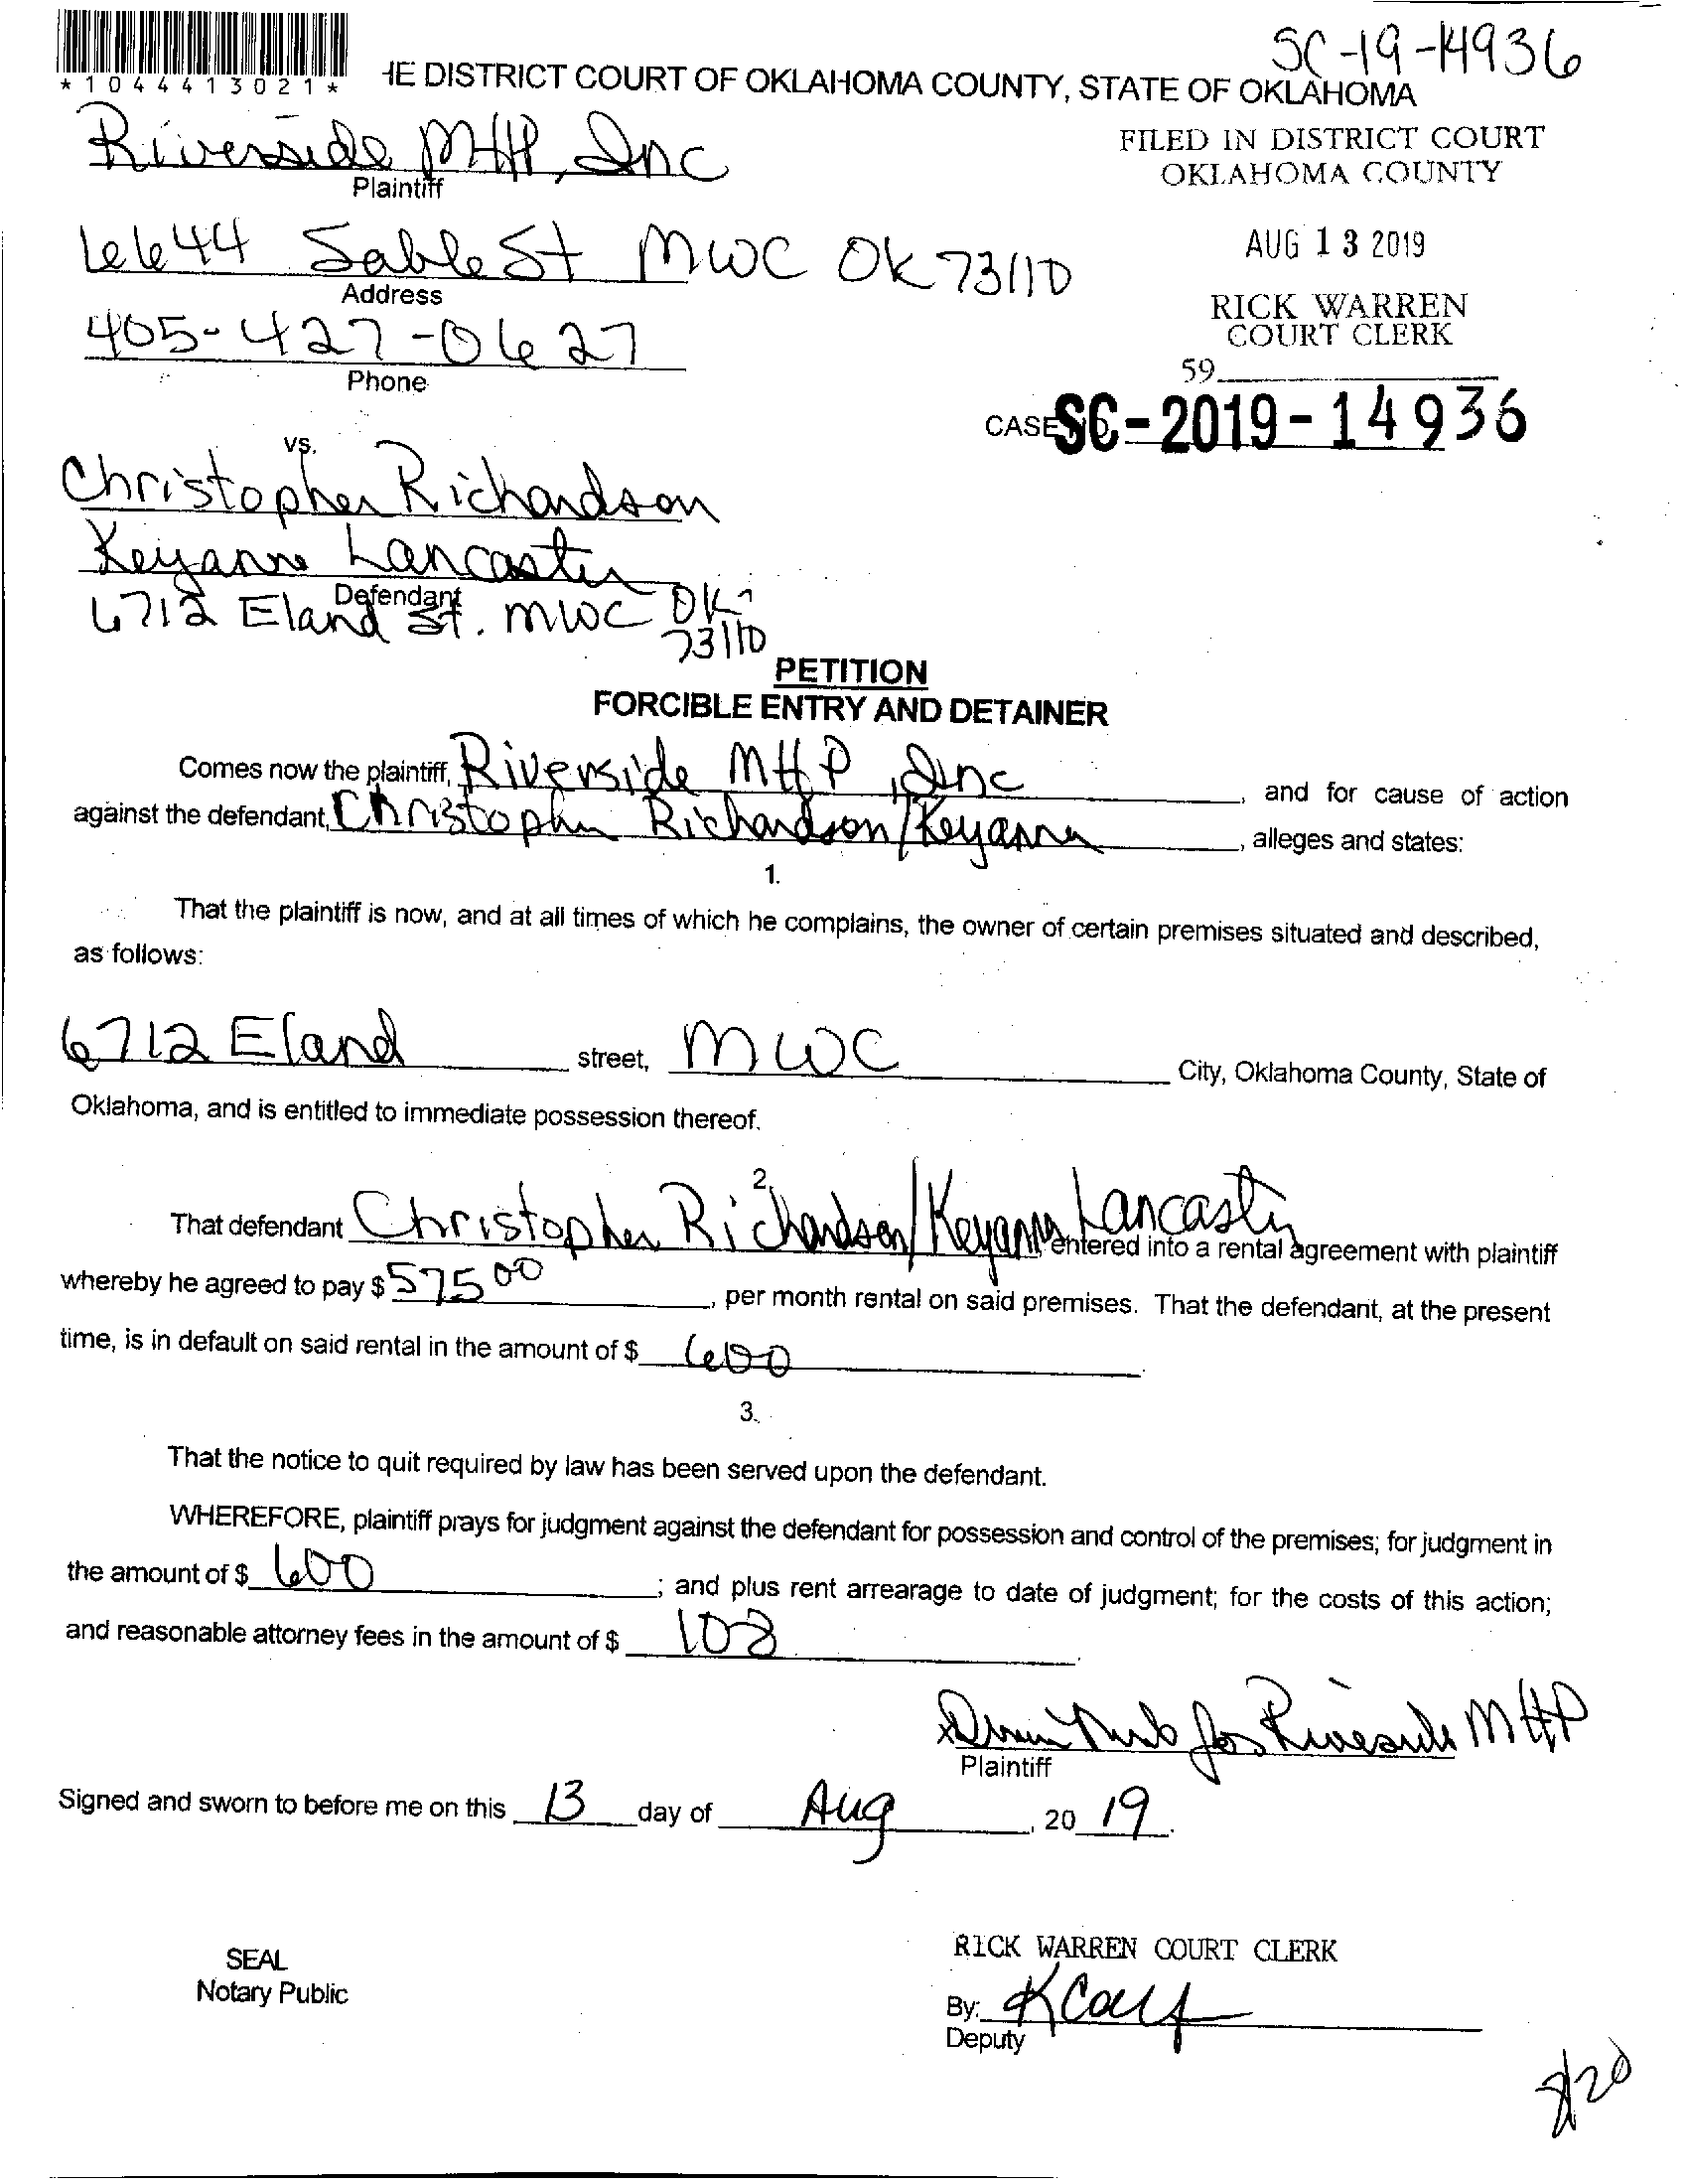 SC-19-14936
*1044413021*
HE DISTRICT COURT OF OKLAHOMA COUNTY, STATE OF OKLAHOMA
Riverside MHP, Inc
Plaintiff
FILED IN DISTRICT COURT
OKLAHOMA COUNTY
6644 Sable St MWC OK 73110
Address
AUG 13 2019
405-427-0627
Phone
RICK WARREN
COURT CLERK
59
CASE NO. SC-2019-14936
vs.
Christopher Richardson
Keyanna Lancaster
Defendant
6712 Eland St. MWC OK
73110
PETITION
FORCIBLE ENTRY AND DETAINER
Comes now the plaintiff, Riverside MHP, Inc, and for cause of action
against the defendant, Christopher Richardson/Keyanna, alleges and states:
1.
That the plaintiff is now, and at all times of which he complains, the owner of certain premises situated and described,
as follows:
6712 Eland street, MWC City, Oklahoma County, State of
Oklahoma, and is entitled to immediate possession thereof.
2.
That defendant Christopher Richardson/Keyanna Lancaster entered into a rental agreement with plaintiff
whereby he agreed to pay $ 575 00, per month rental on said premises. That the defendant, at the present
time, is in default on said rental in the amount of $ 600.
3.
That the notice to quit required by law has been served upon the defendant.
WHEREFORE, plaintiff prays for judgment against the defendant for possession and control of the premises; for judgment in
the amount of $ 600; and plus rent arrearage to date of judgment; for the costs of this action;
and reasonable attorney fees in the amount of $ 108.
for Riverside MHP
Plaintiff
Signed and sworn to before me on this 13 day of Aug, 20 19.
SEAL
Notary Public
RICK WARREN COURT CLERK
By:
Deputy